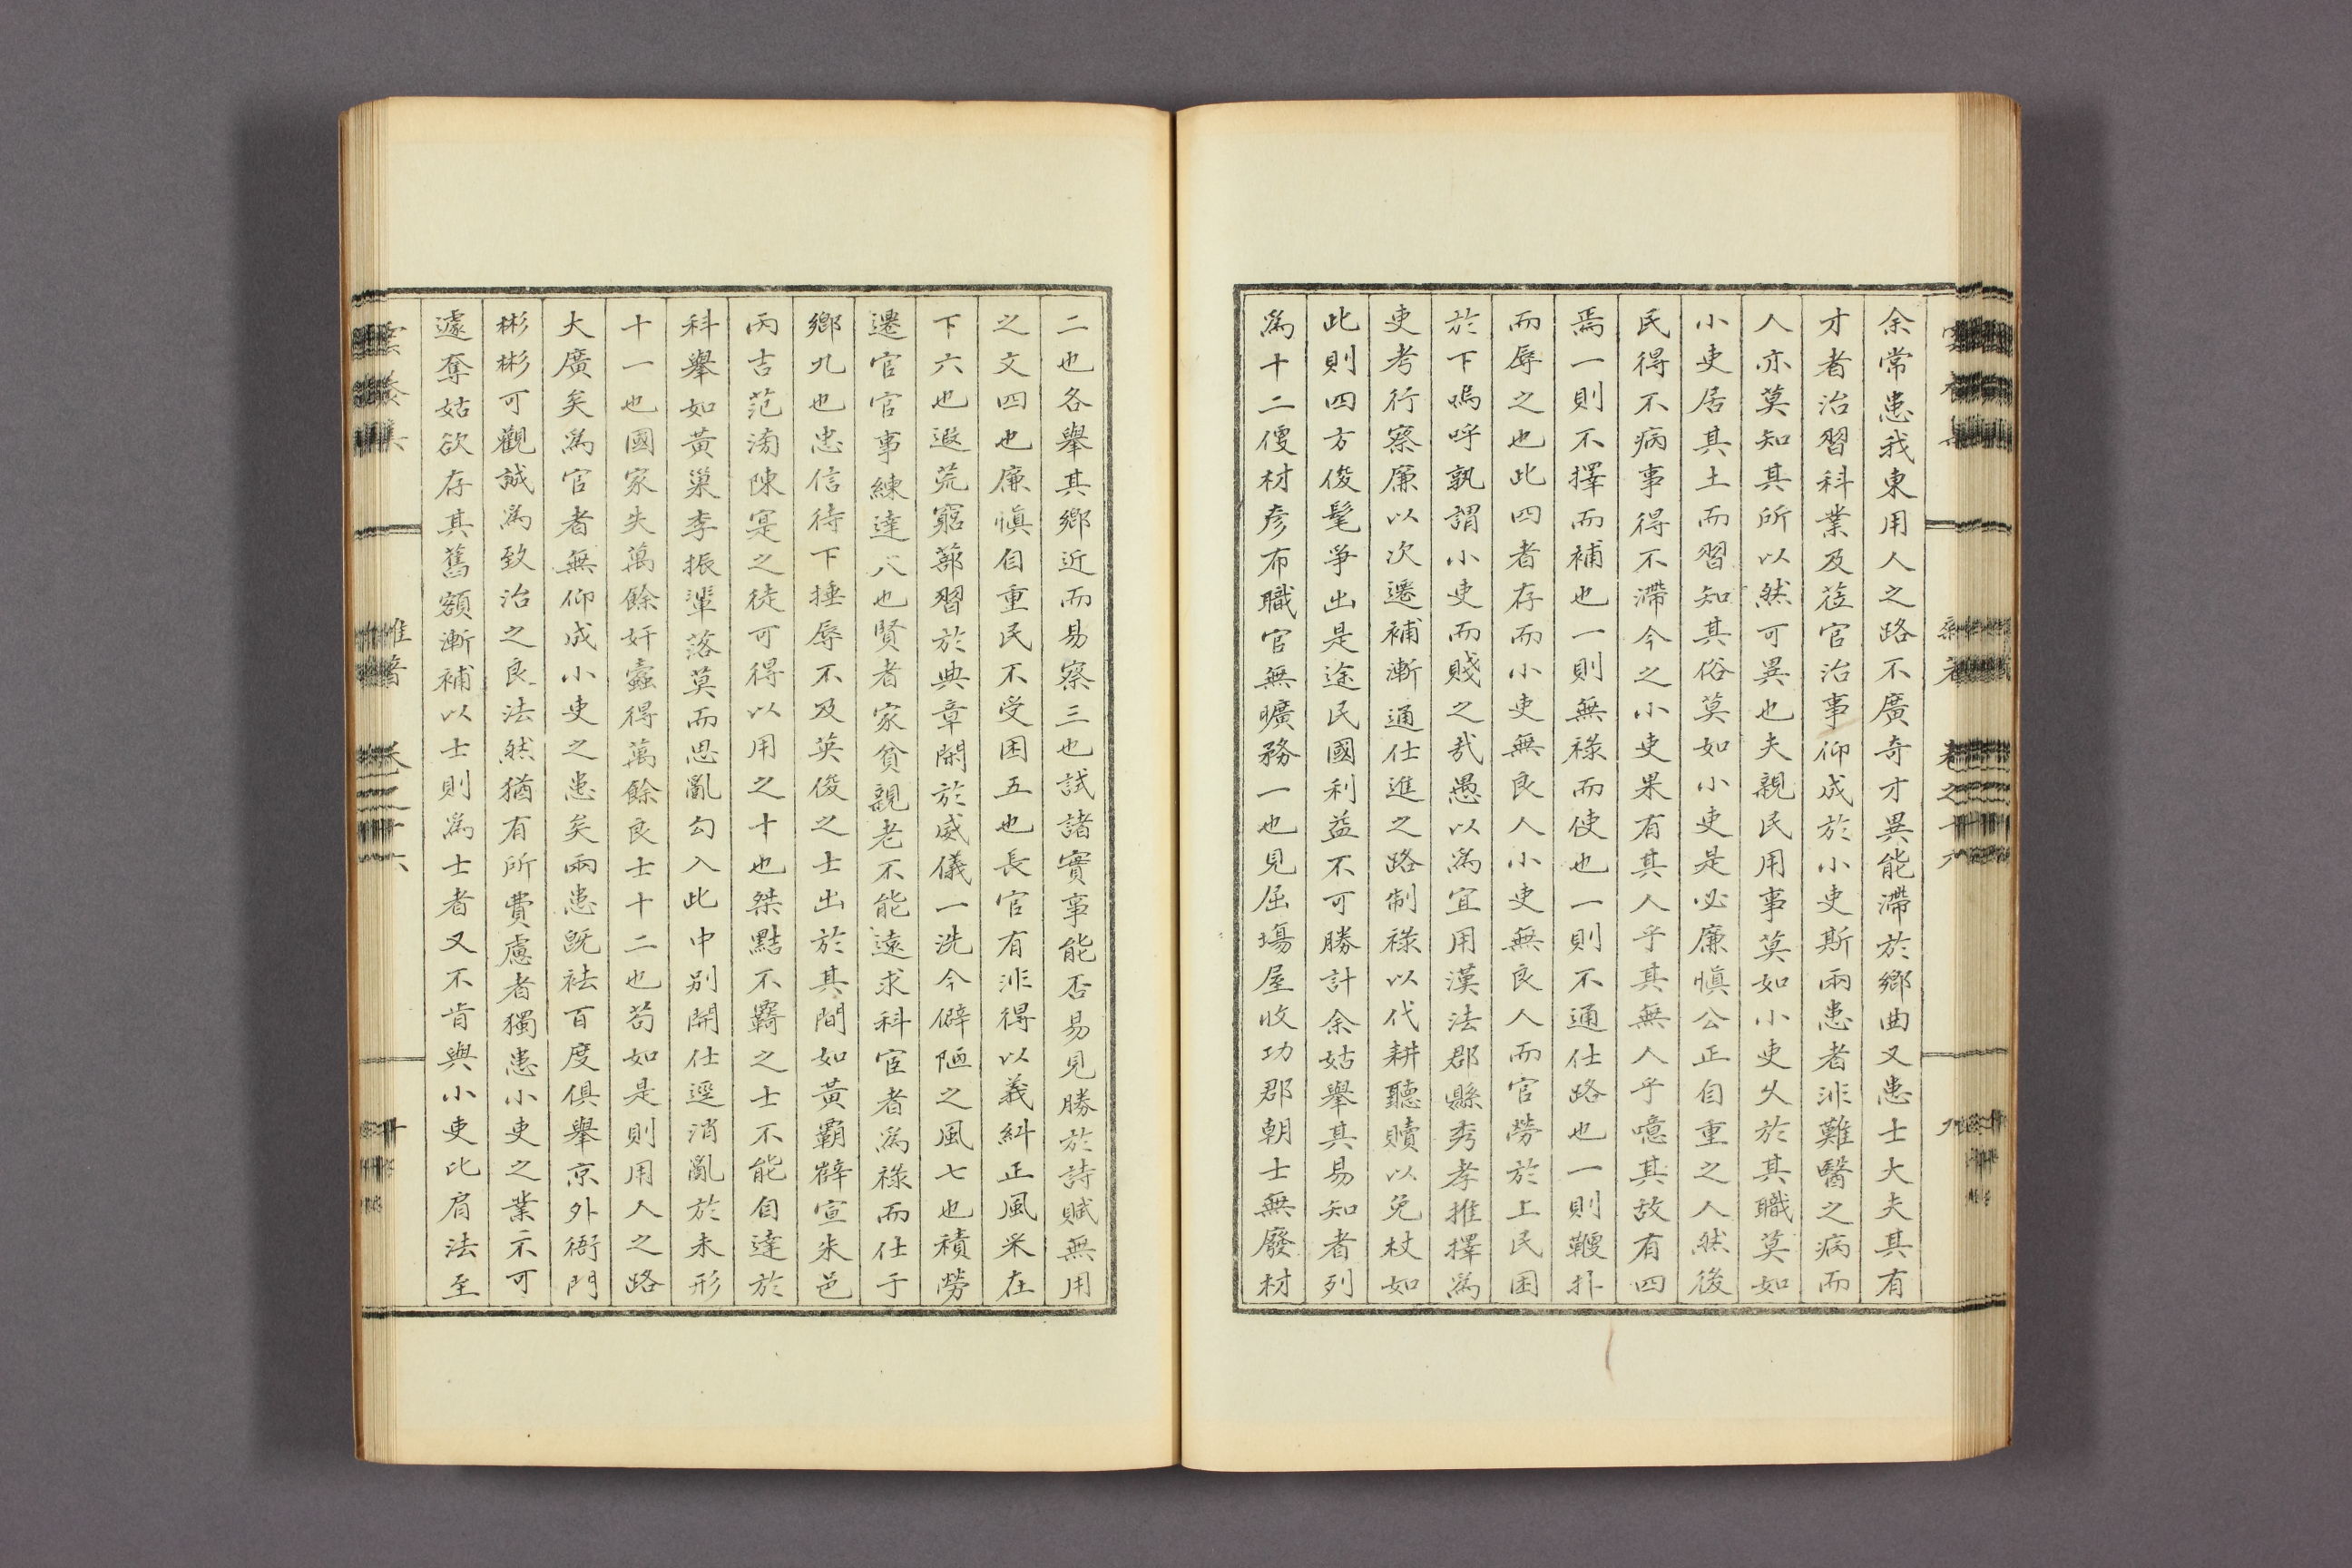 余常患我東用人之路不廣奇才異能滯於鄉曲又患士大夫其有
才者治習科業及莅官治事仰成於小吏斯兩患者非難醫之病而
人亦莫知其所以然可異也夫親民用事莫如小吏久於其職莫如
小吏居其土而習知其俗莫如小吏是必廉愼公正自重之人然後
民得不病事得不滯今之小吏果有其人乎其無人乎噫其故有四
焉一則不擇而補也一則無祿而使也一則不通仕路也一則鞭扑
而辱之也此四者存而小吏無良人小吏無良人而官勞於上民困
於下嗚呼孰謂小吏而賤之哉愚以爲宜用漢法郡縣秀孝推擇爲
吏考行察廉以次遷補漸通仕進之路制祿以代耕聽贖以免杖如
此則四方俊髦爭出是途民國利益不可勝計余姑擧其易知者列
爲十二便材彦布職官無曠務一也見屈塲屋收功郡朝士無廢材
二也各擧其鄉近而易察三也試諸實事能否易見勝於詩賦無用
之文四也廉愼自重民不受困五也長官有非得以義糾正風采在
下六也遐荒窮蔀習於典章閑於威儀一洗今僻陋之風七也積勞
遷官官事練達八也賢者家貧親老不能遠求科宦者爲祿而仕于
鄉九也忠信待下捶辱不及英俊之士出於其間如黃霸薛宣朱邑
丙吉范滂陳寔之徒可得以用之十也桀黠不羈之士不能自達於
科擧如黃巢李振輩落莫而思亂勾入此中別開仕逕消亂於未形
十一也國家失萬餘奸蠹得萬餘良士十二也苟如是則用人之路
大廣矣爲官者無仰成小吏之患矣兩患旣袪百度俱擧京外衙門
彬彬可觀誠爲致治之良法然猶有所費慮者獨患小吏之業不可
遽奪姑欲存其舊額漸補以士則爲士者又不肯與小吏比肩法至